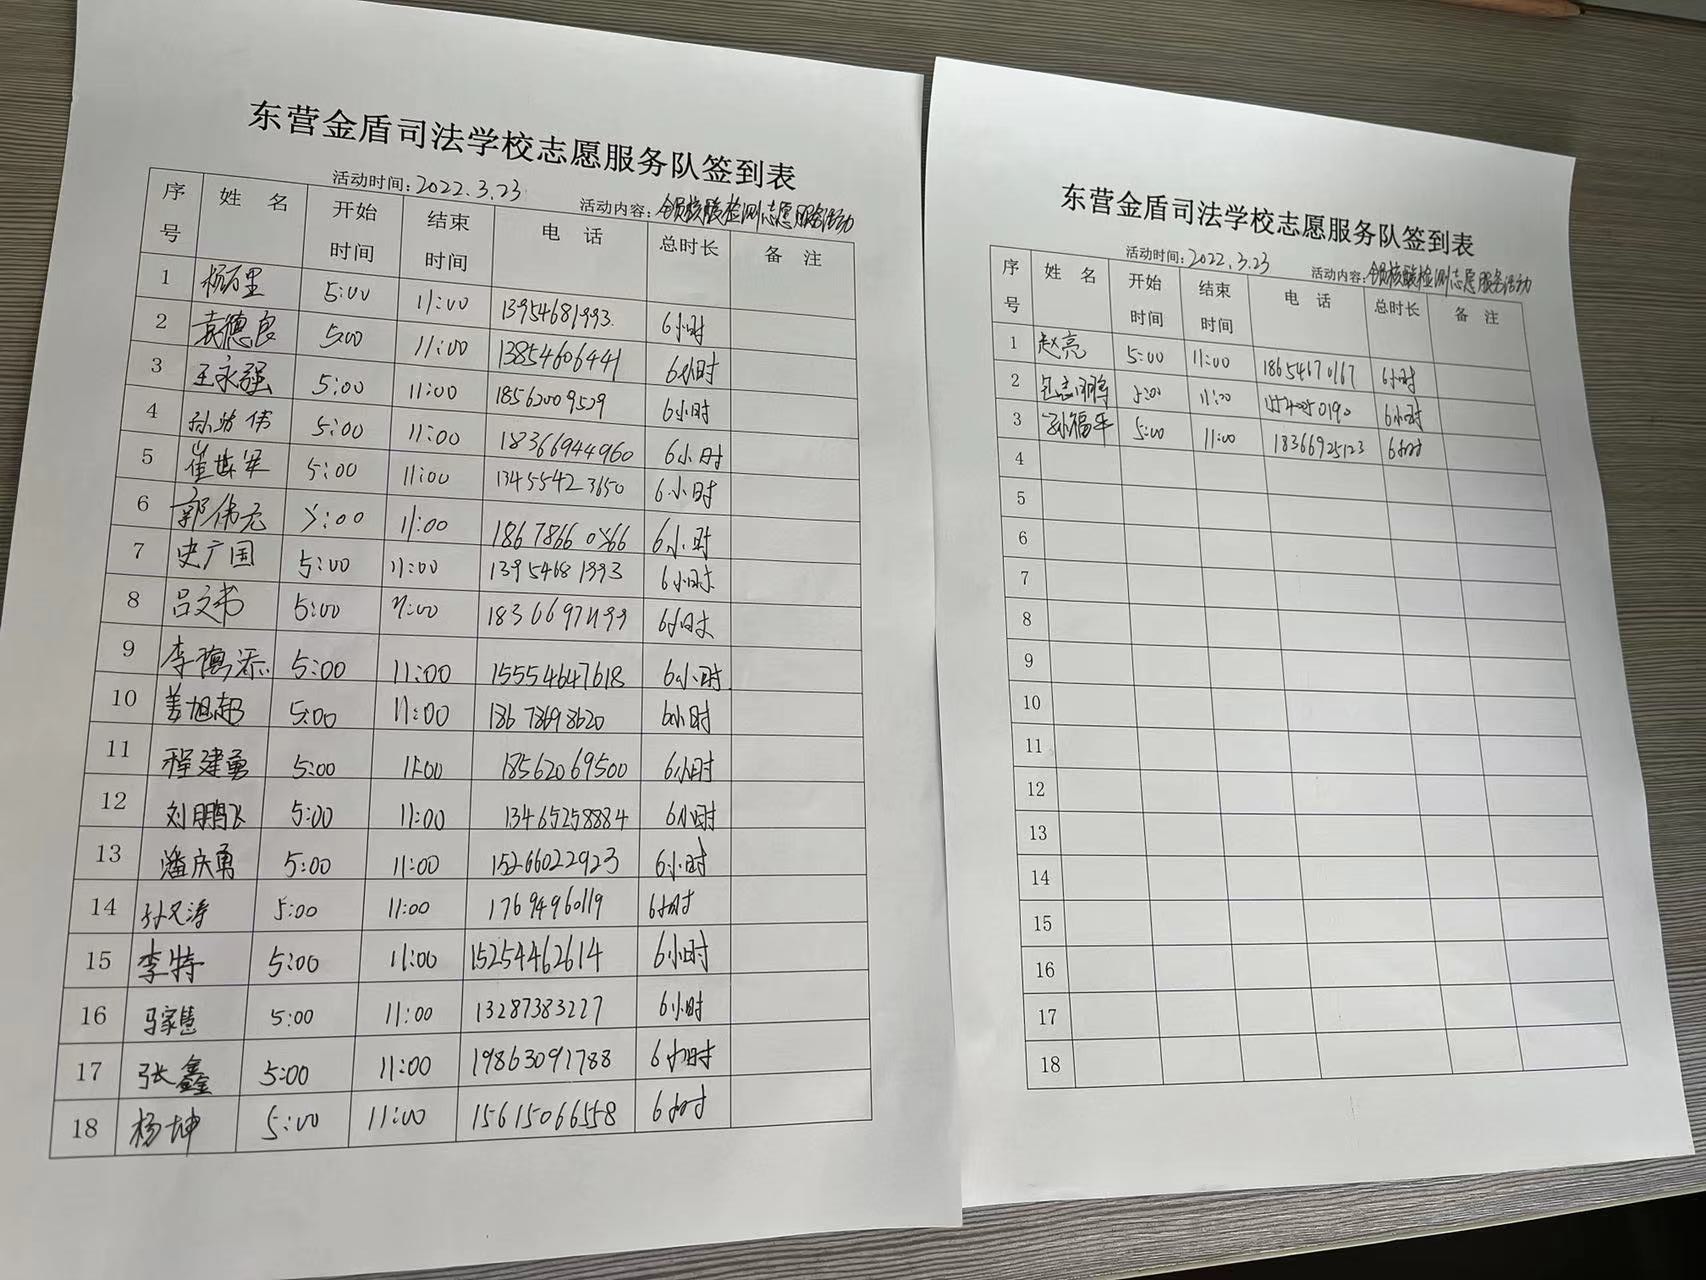 东营金盾司法学校志愿服务队签到表
活动时间：2022.3.23 活动内容：全员核酸检测志愿服务活动
序号 姓名 开始时间 结束时间 电话 总时长 备注
1 杨万里 5:00 11:00 13954681993 6小时
2 袁德良 5:00 11:00 13854606441 6小时
3 王永强 5:00 11:00 18562009529 6小时
4 孙 伟 5:00 11:00 18366944960 6小时
5 崔 军 5:00 11:00 13455423650 6小时
6 郭伟 5:00 11:00 6小时
7 史广国 5:00 11:00 13954681993 6小时
8 吕文韦 5:00 11:00 6小时
9 李 添 5:00 11:00 15554647618 6小时
10 姜旭超 5:00 11:00 18678698620 6小时
11 程建勇 5:00 11:00 18562069500 6小时
12 刘鹏飞 5:00 11:00 13465258884 6小时
13 潘庆勇 5:00 11:00 15266022923 6小时
14 孙 涛 5:00 11:00 6小时
15 李特 5:00 11:00 15254462614 6小时
16 马家慧 5:00 11:00 13287383227 6小时
17 张鑫 5:00 11:00 19863091788 6小时
18 杨坤 5:00 11:00 15615066558 6小时
东营金盾司法学校志愿服务队签到表
活动时间：2022.3.23 活动内容：全员核酸检测志愿服务活动
序号 姓名 开始时间 结束时间 电话 总时长 备注
1 赵亮 5:00 11:00 18654670167 6小时
2 5:00 11:00 6小时
3 孙福平 5:00 11:00 18366925123 6小时
4
5
6
7
8
9
10
11
12
13
14
15
16
17
18